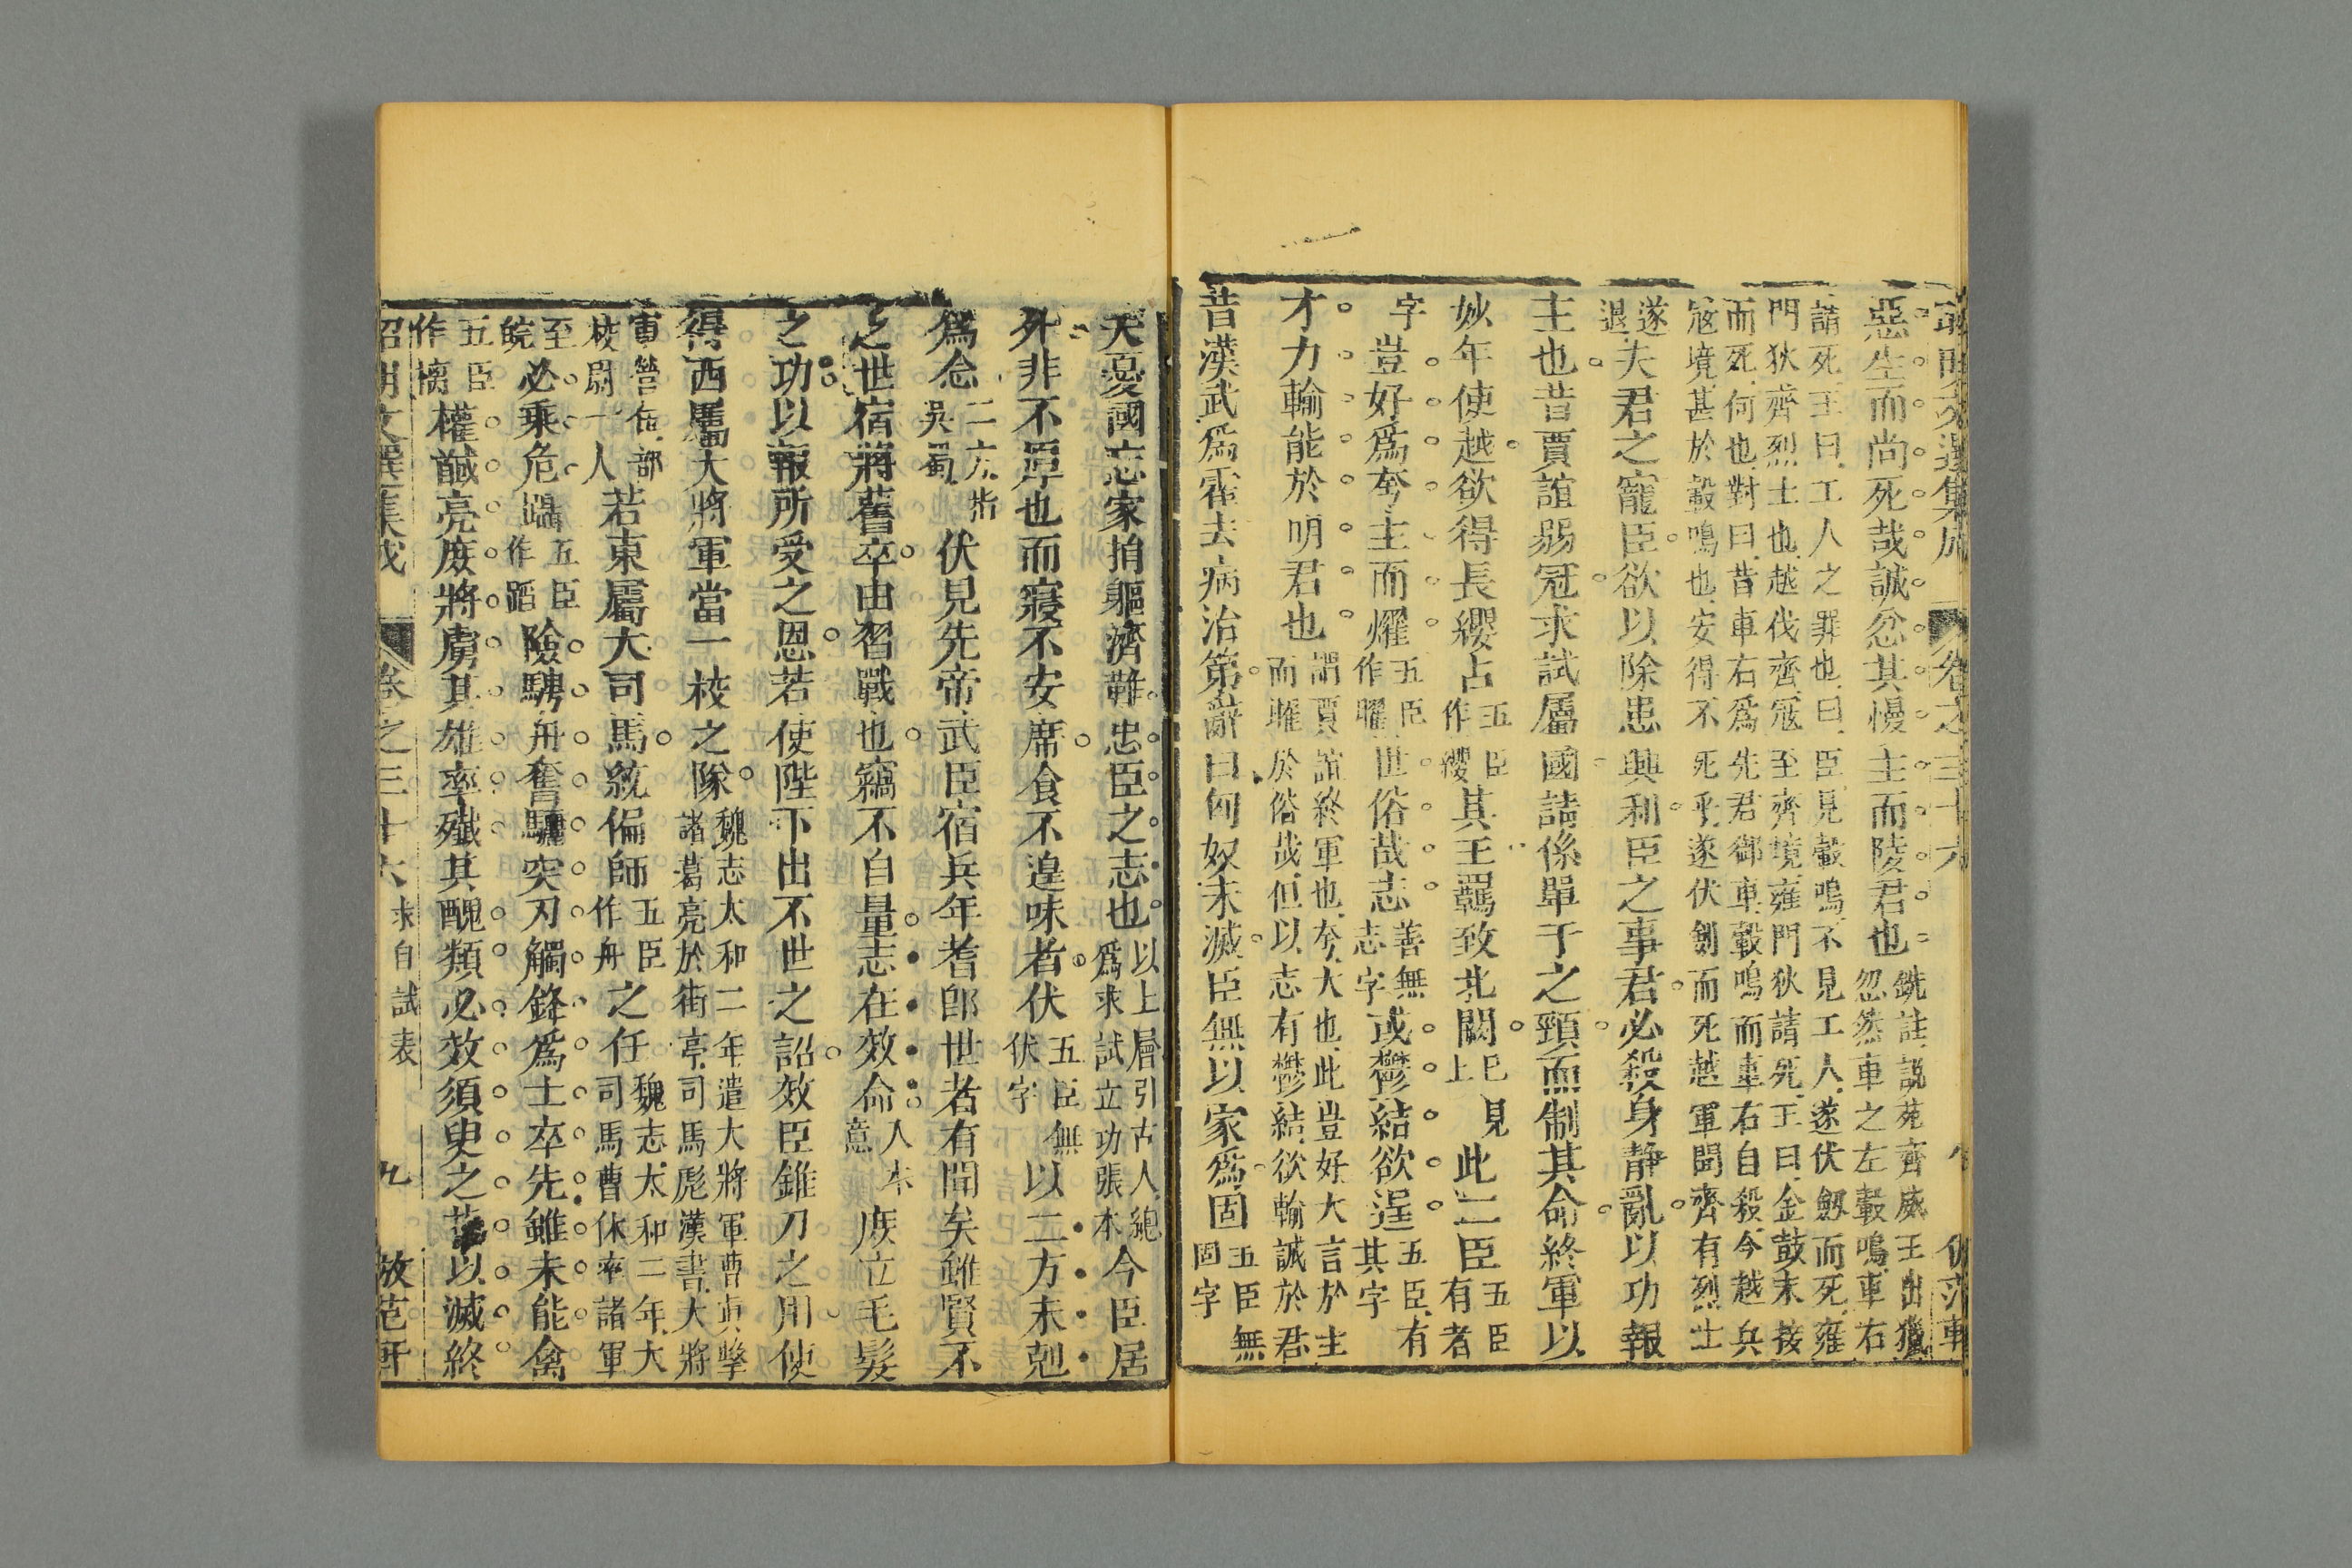 昭明文選集成 卷之三十六 八 倣范軒
惡生而尚死哉誠忿其慢主而陵君也銑註説苑齊威王出獵忽然車之左轂鳴車右
請死王曰工人之罪也曰臣見轂鳴不見工人遂伏劔而死雍
門狄齊烈士也越伐齊冦至齊境雍門狄請死王曰金鼓未接
而死何也對曰昔車右爲先君御車轂鳴而車右自殺今越兵
冦境甚於轂鳴也安得不死乎遂伏劍而死越軍聞齊有烈士
遂退夫君之寵臣欲以除患興利臣之事君必殺身静亂以功報
主也昔賈誼弱冠求試屬國請係單于之頸而制其命終軍以
妙年使越欲得長纓占五臣作纓其王羈致北闕已見上此二臣五臣有者
字豈好爲夸主而燿五臣作曜世俗哉志善無志字或鬱結欲逞五臣有其字
才力輸能於明君也謂賈誼終軍也夸大也此豈好大言於主而曜於俗哉但以志有鬱結欲輸誠於君
昔漢武爲霍去病治第辭曰匈奴未滅臣無以家爲固五臣無固字
夫憂國忘家捐軀濟難忠臣之志也以上層引古人總爲求試立功張本今臣居
外非不厚也而寢不安席食不遑味者伏五臣無伏字以二方未剋
爲念二方指吳蜀伏見先帝武臣宿兵年耆卽世者有聞矣雖賢不
乏世宿將舊卒由習戰也竊不自量志在效命入本意庶立毛髮
之功以報所受之恩若使陛下出不世之詔效臣錐刀之用使
得西屬大將軍當一校之隊魏志太和二年遣大將軍曹真擊諸葛亮於街亭司馬彪漢書大將
軍營伍部校尉一人若東屬大司馬統偏師五臣作舟之任魏志太和二年大司馬曹休率諸軍
至皖必乘危䠟五臣作蹈險騁舟奮驪突刃觸鋒爲士卒先雖未能禽
五臣作摛權馘亮庶將虜其雄率殲其醜類必效須臾之捷以滅終
昭明文選集成 卷之三十六 求自試表 九 倣范軒